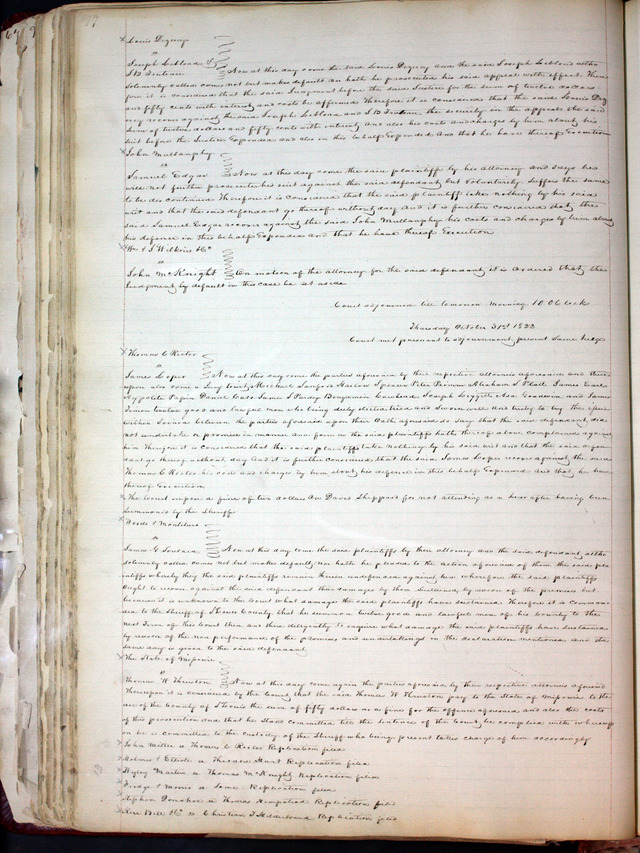 77
Louis Deguay
vs
Joseph Leblond &
J B Trudeau Now at this day come the said Louis Deguay and the said Joseph Leblond altho
solemnly called come not but makes default nor hath he prosecuted his said appeal with effect. There
fore it is considered that the said Judgment before the said Justice for the sum of twelve dollars
and fifty cents with interest and costs be affirmed Therefore it is considered that the said Louis Deg
uay recover against the said Joseph Leblond and J B Trudeau the security in the appeal the said
Sum of twelve dollars and fifty cents with interest and also his costs and charges by him about his
suit before the Justice Expended and also in this behalf Expended And that he have thereof Execution
John Mullanphy
vs
Samuel Edgar Now at this day come the said plaintiff by his attorney and says he
will not further prosecute his suit against the said defendant but voluntarily suffers the same
to be discontinued Therefore it is considered that the said plaintiff take nothing by his said
writ and that the said defendant go thereof without day and it is further considered that the
said Samuel Edgar recover against the said John Mullanphy his costs and charges by him about
his defence in this behalf Expended and that he have thereof Execution
Wm & J Wilkins & Co
vs
John McKnight On motion of the attorney for the said defendant it is ordered that the
Judgment by default in this case be set aside
Court adjourned till tomorrow morning 10 OClock
Thursday October 31st 1822
Court met pursuant to adjournment, present Same Judge
Thomas C Rector
vs
James Loper Now at this day come the parties aforesaid by their respective attornies aforesaid and there
upon also come a Jury towit, Michael Sanford Spencer Peter Primm Abraham S Platt James Earl
Hypolite Papin Daniel Cass James S Purdy Benjamin Joseph Liggett Asa Goodwin and James
twelve good and lawful men who being duly elected tried and sworn well and truly to try the issue
within Joined between the parties aforesaid upon their Oath aforesaid do say that the said defendant, did
not undertake & promise in manner and form as the said plaintiff hath thereof above complained against
him Therefore it is considered that the said plaintiff take nothing by his said writ and that the said defen
dant go thereof without day And it is further considered that the said James Loper recover against the said
Thomas C Rector his costs and charges by him about his defence in this behalf Expended and that he have
thereof Execution
The Court impose a fine of two dollars on David Sheppard for not attending as a Juror after having been
summoned by the Sheriff
Woods &
vs
James G Now at this day come the said plaintiffs by their attorney and the said defendant, altho
solemnly called come not but makes default, nor hath he pleaded to the action aforesaid of them the said pla
intiffs whereby they the said plaintiffs remain therein undefended against him wherefore the said plaintiffs
ought to recover against the said defendant their damages by them sustained by reason of the premises but
because it is unknown to the Court what damages the said plaintiffs have sustained Therefore it is comman
ded to the Sheriff of St Louis County that he summon twelve good and lawful men of his County to the
next Term of this Court then and there diligently to inquire what damage the said plaintiffs have sustained
by reason of the non performance of the promises and undertakings in the declaration mentioned and the
same day is given to the said defendant
The State of Missouri
vs
Thomas W Thruston Now at this day come again the parties aforesaid by their respective attornies aforesaid
Thereupon it is considered by the Court, that the said Thomas W Thruston pay to the State of Missouri to the
use of the County of St Louis the sum of fifty dollars as a fine for the offence aforesaid and also the costs
of this prosecution and that he stand committed till the sentence of the Court, be complied with whereup
on he is committed to the custody of the Sheriff who being present takes charge of him accordingly
John Miller vs Thomas C Rector Replication filed
Holmes & Elliott vs Thomas Hunt Replication filed
Wyley Martin vs Thomas McKnight Replication filed
& Morris vs Same Replication filed
Stephen Donohoe vs Thomas Hempstead Replication filed
Bell & Co vs Christian Replication filed